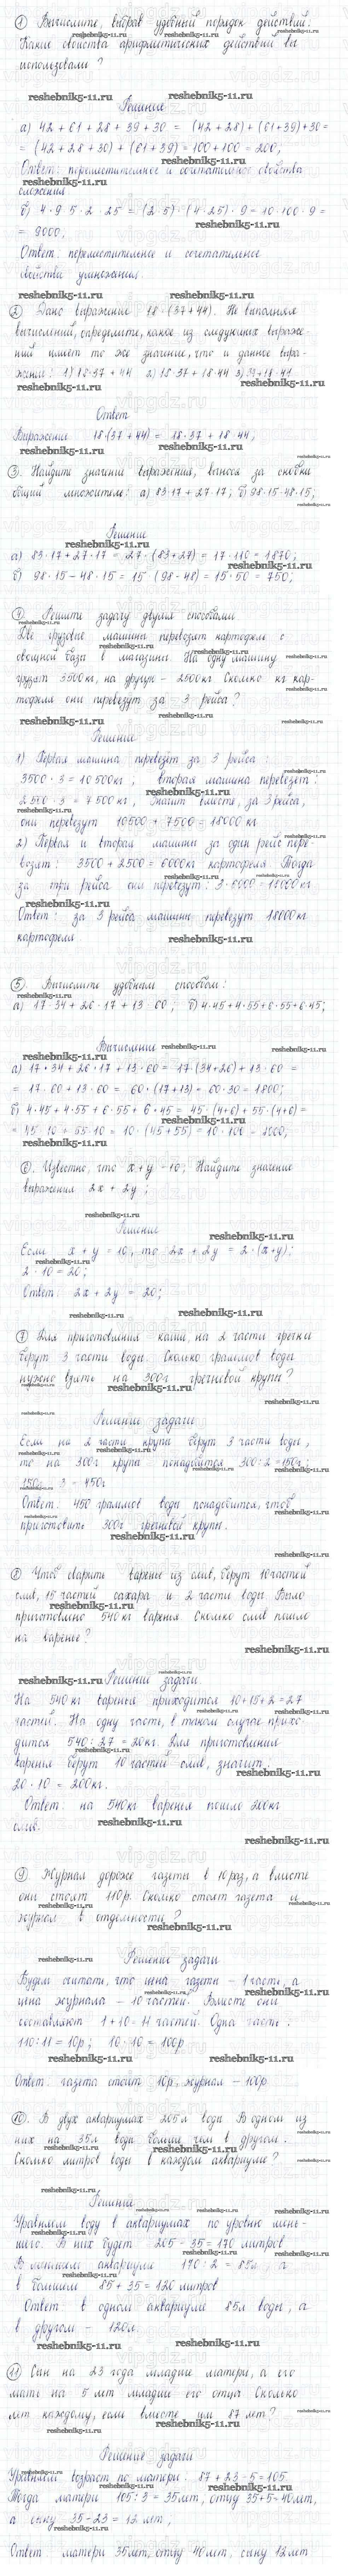 ① Вычислите, выбрав удобный порядок действий.
Какие свойства арифметических действий вы
использовали?
reshebnik5-11.ru
Решение
а) 42 + 61 + 28 + 39 + 30 = (42 + 28) + (61 + 39) + 30 =
= (42 + 28 + 30) + (61 + 39) = 100 + 100 = 200;
Ответ: переместительное и сочетательное свойства
сложения
б) 4 · 9 · 5 · 2 · 25 = (2 · 5) · (4 · 25) · 9 = 10 · 100 · 9 =
= 9000;
Ответ: переместительное и сочетательное
свойства умножения.
② Дано выражение 18 · (37 + 44). Не выполняя
вычислений, определите, какое из следующих выраже-
ний имеет то же значение, что и данное выра-
жение: 1) 18 · 37 + 44 2) 18 · 37 + 18 · 44
Ответ
Выражение 18 · (37 + 44) = 18 · 37 + 18 · 44;
③ Найдите значение выражения, вынося за скобки
общий множитель: а) 83 · 17 + 27 · 17; б) 98 · 15 - 48 · 15;
Решение
а) 83 · 17 + 27 · 17 = 27 · (83 + 27) = 17 · 110 = 1870;
б) 98 · 15 - 48 · 15 = 15 (98 - 48) = 15 · 50 = 750;
④ Решите задачу двумя способами
Две грузовые машины перевозят картофель с
овощной базы в магазины. На одну машину
грузят 3500кг, на другую - 2500кг Сколько кг кар-
тофеля они перевезут за 3 рейса?
Решение
1) Первая машина перевезёт за 3 рейса:
3500 · 3 = 10500кг; вторая машина перевезёт:
2500 · 3 = 7500кг, Значит вместе, за 3 рейса,
они перевезут 10500 + 7500 = 18000 кг
2) Первая и вторая машины за один рейс пере-
возят: 3500 + 2500 = 6000кг картофеля Тогда
за три рейса они перевезут: 3 · 6000 = 18000кг
Ответ: за 3 рейса машины перевезут 18000кг
картофеля
⑤. Вычислите удобным способом:
а) 17 · 34 + 26 · 17 + 13 · 60, б) 4 · 45 + 4 · 55 + 6 · 55 + 6 · 45;
Вычисление
а) 17 · 34 + 26 · 17 + 13 · 60 = 17 · (34 + 26) + 13 · 60 =
= 17 · 60 + 13 · 60 = 60 · (17 + 13) = 60 · 30 = 1800;
б) 4 · 45 + 4 · 55 + 6 · 55 + 6 · 45 = 45 · (4 + 6) + 55 · (4 + 6) =
= 45 · 10 + 55 · 10 = 10 · (45 + 55) = 10 · 100 = 1000;
⑥. Известно, что x + y = 10; Найдите значение
выражения 2x + 2y;
Решение
Если x + y = 10, то 2x + 2y = 2 · (x + y);
2 · 10 = 20;
Ответ: 2x + 2y = 20;
⑦ Для приготовления каши, на 2 части гречки
берут 3 части воды. Сколько граммов воды
нужно взять на 300г гречневой крупы?
Решение задачи
Если на 2 части крупы берут 3 части воды,
то на 300г крупы понадобится 300 : 2 = 150г;
150г · 3 = 450г
Ответ: 450 граммов воды понадобится, чтоб
приготовить 300г гречневой крупы.
⑧ Чтоб сварить варенье из слив, берут 10 частей
слив, 15 частей сахара и 2 части воды Было
приготовлено 540кг варенья Сколько слив пошло
на варенье?
Решение задачи.
На 540кг варенья приходится 10 + 15 + 2 = 27
частей. На одну часть, в таком случае прихо-
дится 540 : 27 = 20кг. Для приготовления
варенья берут 10 частей слив, значит:
20 · 10 = 200кг.
Ответ: на 540кг варенья пошло 200кг
слив.
⑨ Журнал дороже газеты в 10 раз, а вместе
они стоят 110р. Сколько стоят газета и
журнал в отдельности?
Решение задачи
Будем считать, что цена газеты - 1 часть, а
цена журнала - 10 частей. Вместе они
составляют 1 + 10 = 11 частей. Одна часть:
110 : 11 = 10р; 10 · 10 = 100р
Ответ: газета стоит 10р, журнал - 100р
⑩. В двух аквариумах 205л воды В одном из
них на 35л воды больше чем в другом.
Сколько литров воды в каждом аквариуме?
Решение
Уравняем воду в аквариумах по уровню мень-
шего. В них будет 205 - 35 = 170 литров
В меньшем аквариуме 170 : 2 = 85л, а
в большем 85 + 35 = 120 литров
Ответ: в одном аквариуме 85л воды, а
в другом - 120л.
⑪ Сын на 23 года младше матери, а его
мать на 5 лет младше его отца Сколько
лет каждому, если вместе им 87 лет?
Решение задачи
Уравняем возраст по матери: 87 + 23 - 5 = 105
Тогда матери 105 : 3 = 35лет, отцу 35 + 5 = 40лет,
а сыну 35 - 23 = 12 лет,
Ответ: матери 35лет, отцу 40 лет, сыну 12 лет